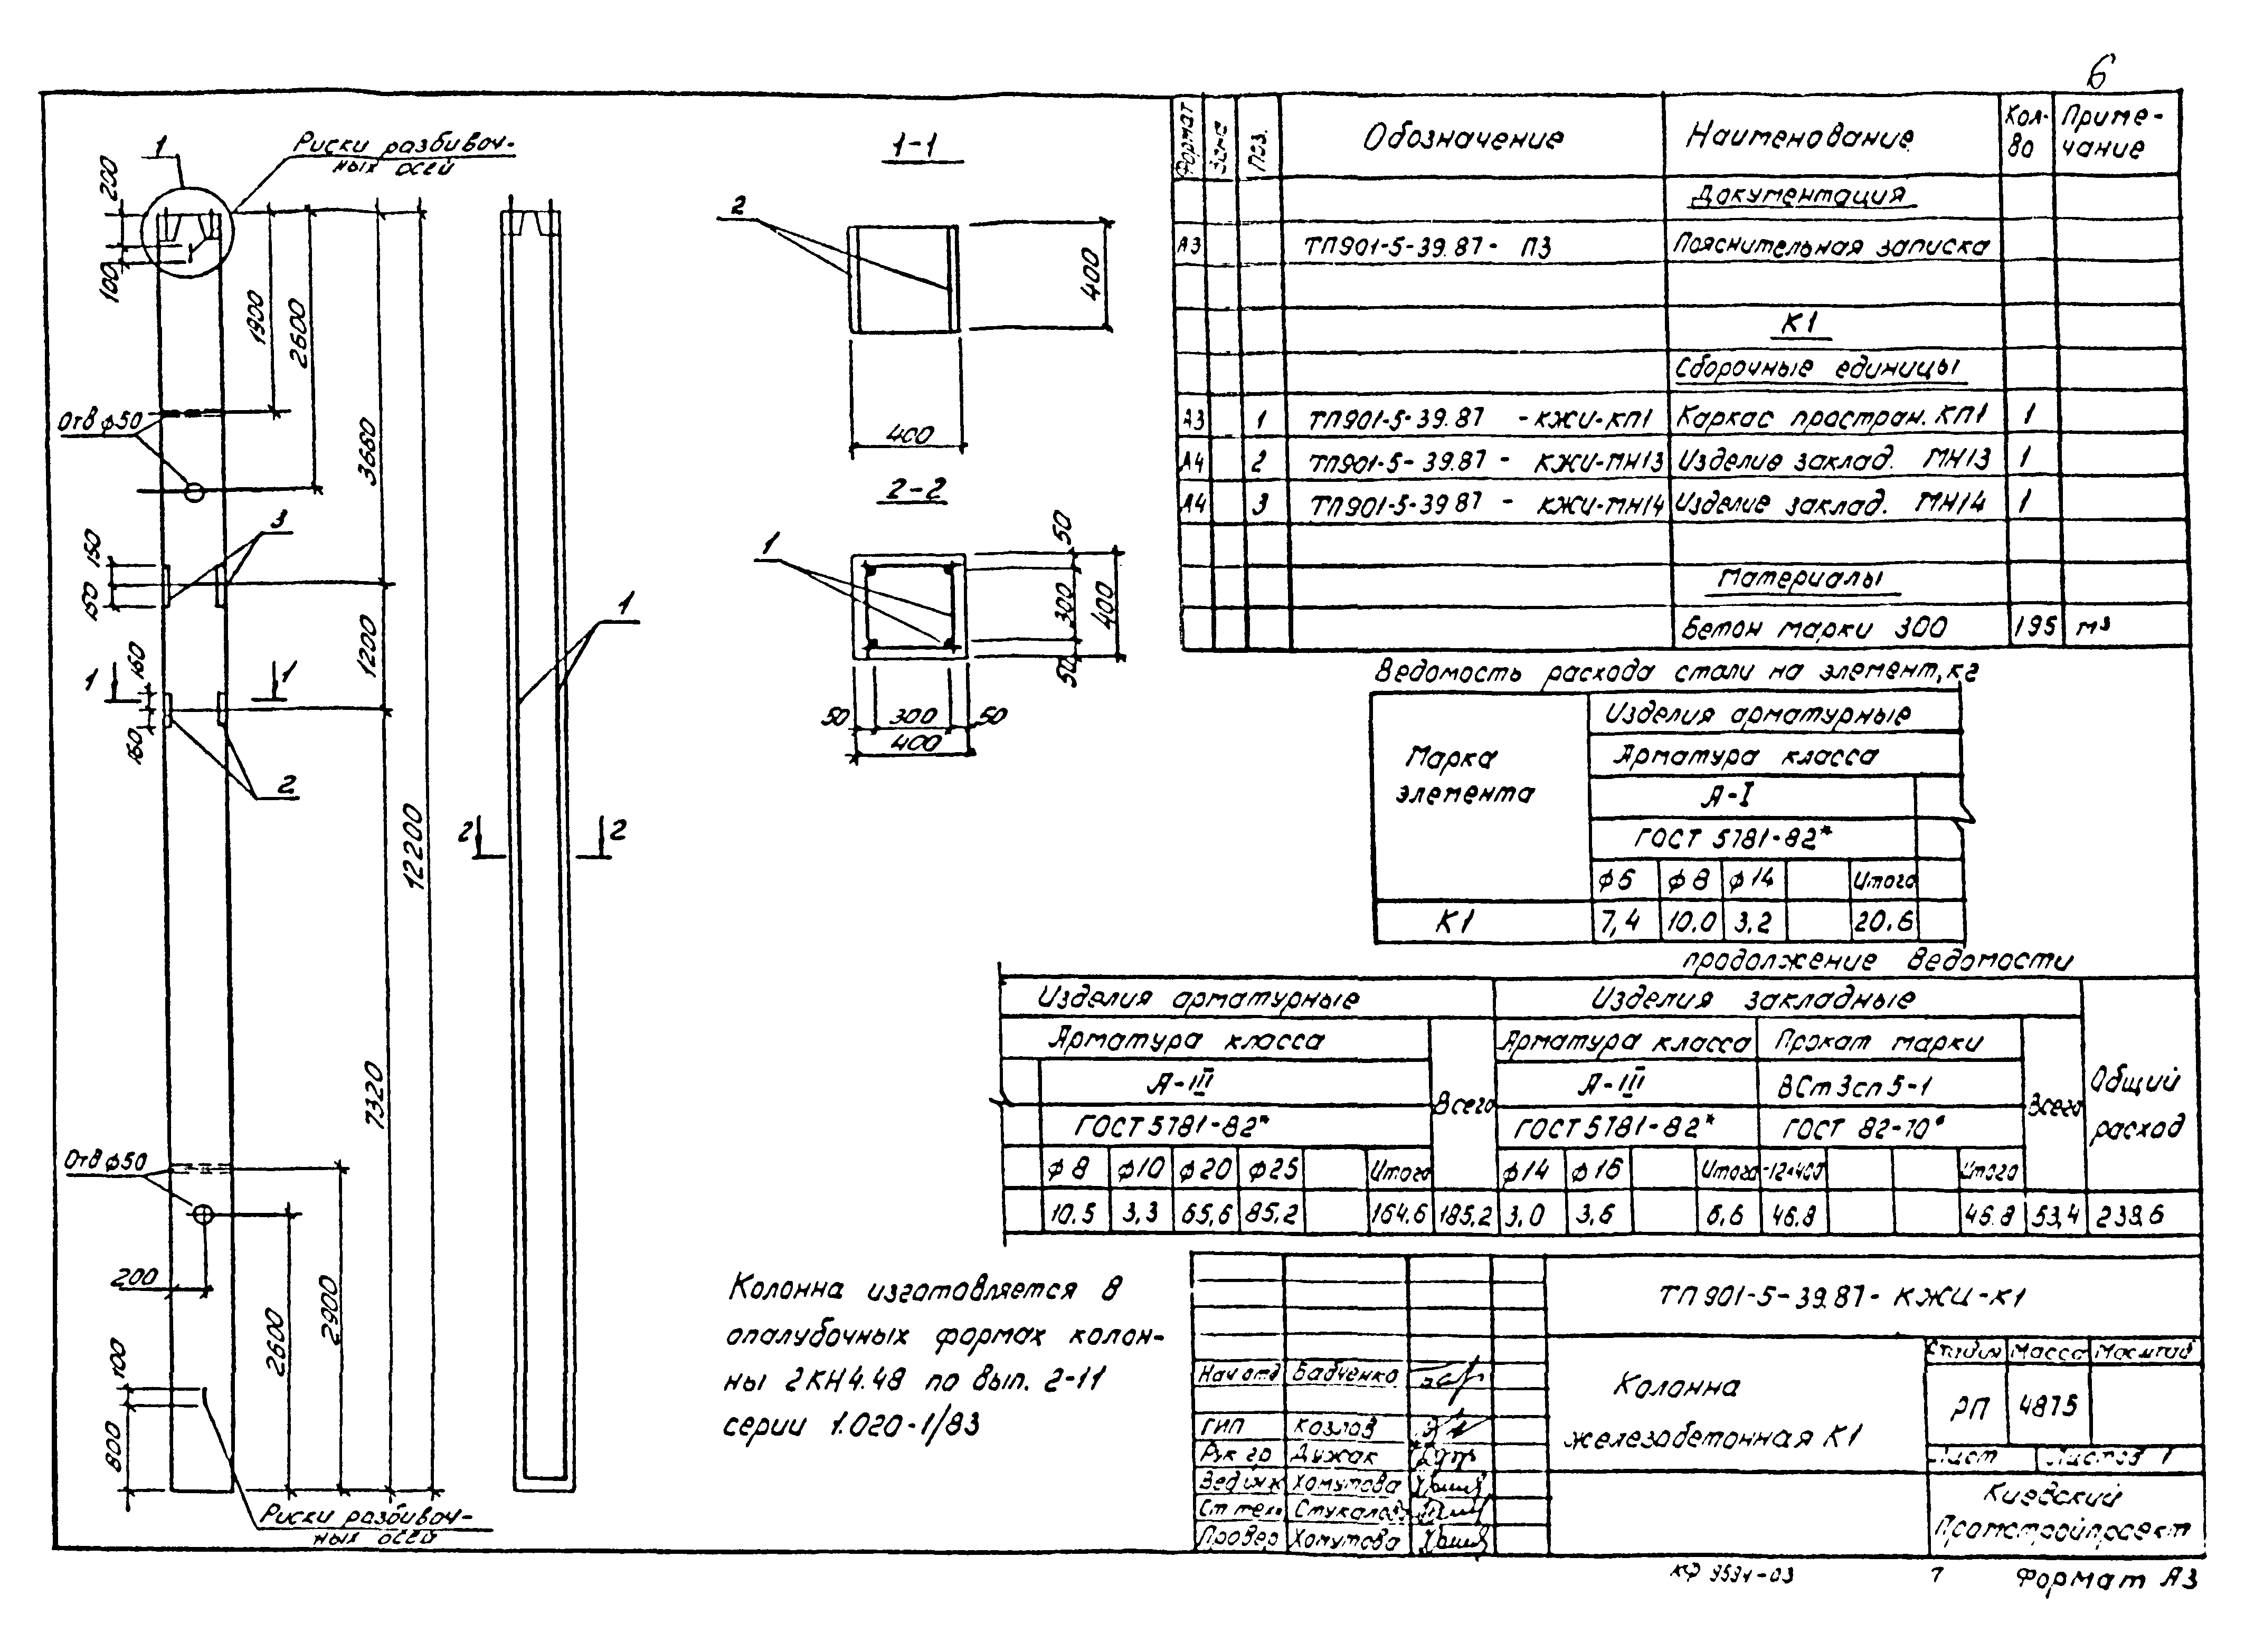 6
1
Риски разбивоч-
ных осей
200
100
1900
2600
3660
Отв ф50
3
150
150
1200
160
1 1
160
2
12200
7320
Отв ф50
200
2600
2900
100
800
Риски разбивоч-
ных осей
1
2 2
1-1
2
400
400
2-2
1
50
300
400
50
50 300 50
400
Формат Зона Поз. Обозначение Наименование Кол-во Приме-чание
Документация
А3 ТП901-5-39.87- ПЗ Пояснительная записка
К1
Сборочные единицы
А3 1 ТП901-5-39.87 -КЖИ-КП1 Каркас простран. КП1 1
А4 2 ТП901-5-39.87- КЖИ-МН13 Изделие заклад. МН13 1
А4 3 ТП901-5-39.87 - КЖИ-МН14 Изделие заклад. МН14 1
Материалы
Бетон марки 300 195 м³
Ведомость расхода стали на элемент, кг
Марка
элемента
Изделия арматурные
Арматура класса
А-I
ГОСТ 5781-82*
ф6 ф8 ф14 Итого
К1 7,4 10.0 3.2 20.6
продолжение ведомости
Изделия арматурные Изделия закладные
Арматура класса Всего Арматура класса Прокат марки Всего Общий
расход
А-III А-III ВСт3сп5-1
ГОСТ 5781-82* ГОСТ 5781-82* ГОСТ 82-70*
ф8 ф10 ф20 ф25 Итого ф14 ф16 Итого -12×400 Итого
10.5 3,3 65,6 85,2 164.6 185,2 3,0 3,6 6,6 46.8 46.8 53,4 238.6
Колонна изготовляется в
опалубочных формах колон-
ны 2КН4.48 по вып. 2-11
серии 1.020-1/83
ТП901-5-39.87- КЖИ-К1
Колонна
железобетонная К1
Стадия Масса Масштаб
РП 4875
Лист Листов 1
Киевский
Промстройпроект
Нач отд Бабченко
ГИП Козлов
Рук гр Дужак
Вед инж Хомутова
Ст техн
Провер Хомутова
7 Формат А3